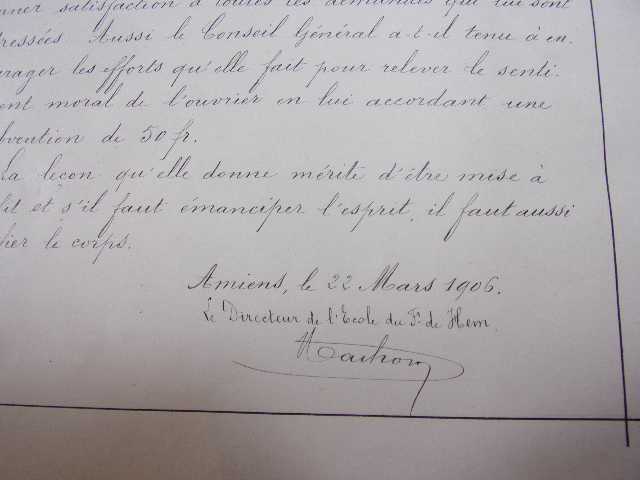 nner satisfaction à toutes les demandes qui lui sont
dressées. Aussi le Conseil Général a-t-il tenu à en-
urager les efforts qu'elle fait pour relever le senti-
ent moral de l'ouvrier en lui accordant une
bvention de 50 fr.
La leçon qu'elle donne mérite d'être mise à
fit et s'il faut émanciper l'esprit, il faut aussi
fier le corps.
Amiens, le 22 Mars 1906.
Le Directeur de l'Ecole du Fg. de Hem.